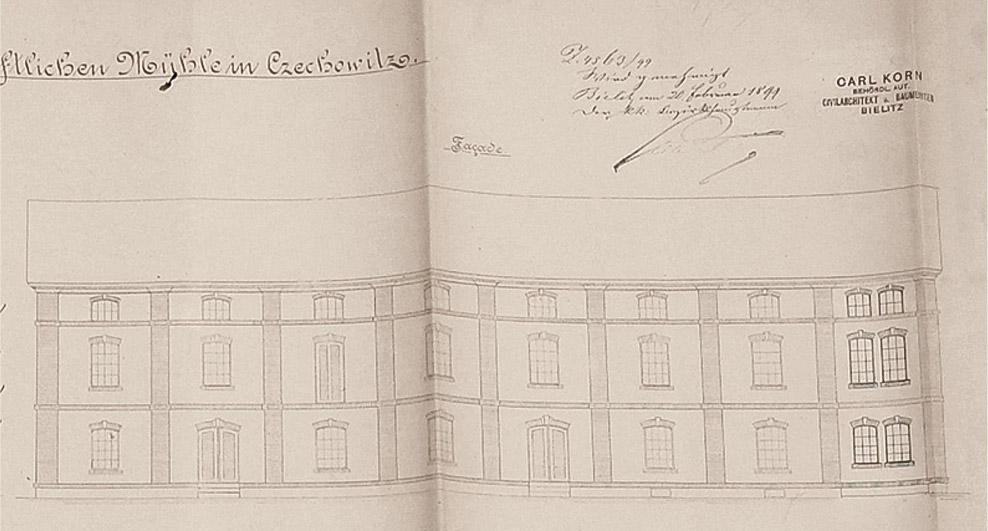 ftlichen Mühle in Czechowitz.
Z. 4563/99
Wird genehmigt
Bielitz am 20. Februar 1899
Der kk. Bezirkshauptmann
CARL KORN
BEHÖRDL. AUT.
CIVILARCHITEKT u. BAUMEISTER
BIELITZ
Façade